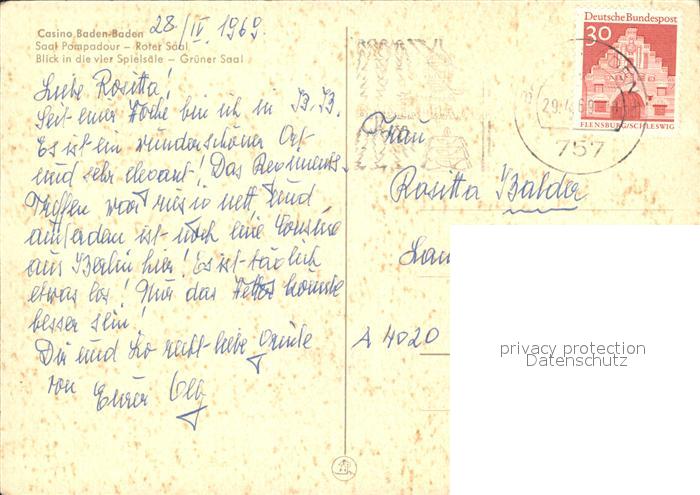 Casino Baden-Baden
Saal Pompadour – Roter Saal
Blick in die vier Spielsäle – Grüner Saal
28./IV. 1969.
Liebe Rositta!
Seit einer Woche bin ich in B.B.
Es ist ein wunderschöner Ort
und sehr elegant! Das Regiments-
Treffen war riesig nett und
außerdem ist noch eine Cousine
aus Berlin hier! Es ist täglich
etwas los! Nur das Wetter könnte
besser sein!
Dir und Lo recht liebe Grüße
von Eurer
Deutsche Bundespost
30
FLENSBURG/SCHLESWIG
29.4.69
757
Frau
Rositta Balda
A 4020
privacy protection
Datenschutz